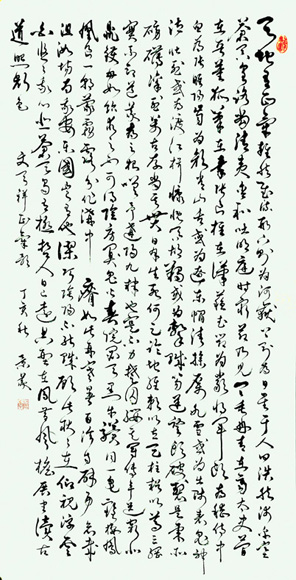 天地有正氣雜然賦流形下則為河嶽上則為日星於人曰浩然沛乎塞
蒼冥皇路當清夷含和吐明庭時窮節乃見一一垂丹青在齊太史簡
在晉董狐筆在秦張良椎在漢蘇武節為嚴將軍頭為嵇侍中
血為張睢陽齒為顏常山舌或為遼東帽清操厲冰雪或為出師表鬼神
泣壯烈或為渡江楫慷慨吞胡羯或為擊賊笏逆豎頭破裂是氣所
磅礴凜烈萬古存當其貫日月生死安足論地維賴以立天柱賴以尊三綱
實係命道義為之根嗟予遘陽九隸也實不力楚囚纓其冠傳車送窮北
鼎鑊甘如飴求之不可得陰房闐鬼火春院閟天黑牛驥同一皂雞棲
鳳凰食一朝蒙霧露分作溝中瘠如此再寒暑百沴自辟易哀哉
沮洳場為我安樂國豈有他繆巧陰陽不能賊顧此耿耿在仰視浮雲
白悠悠我心悲蒼天曷有極哲人日已遠典刑在夙昔風檐展書讀古
道照顏色
文天祥正氣歌 丁亥秋